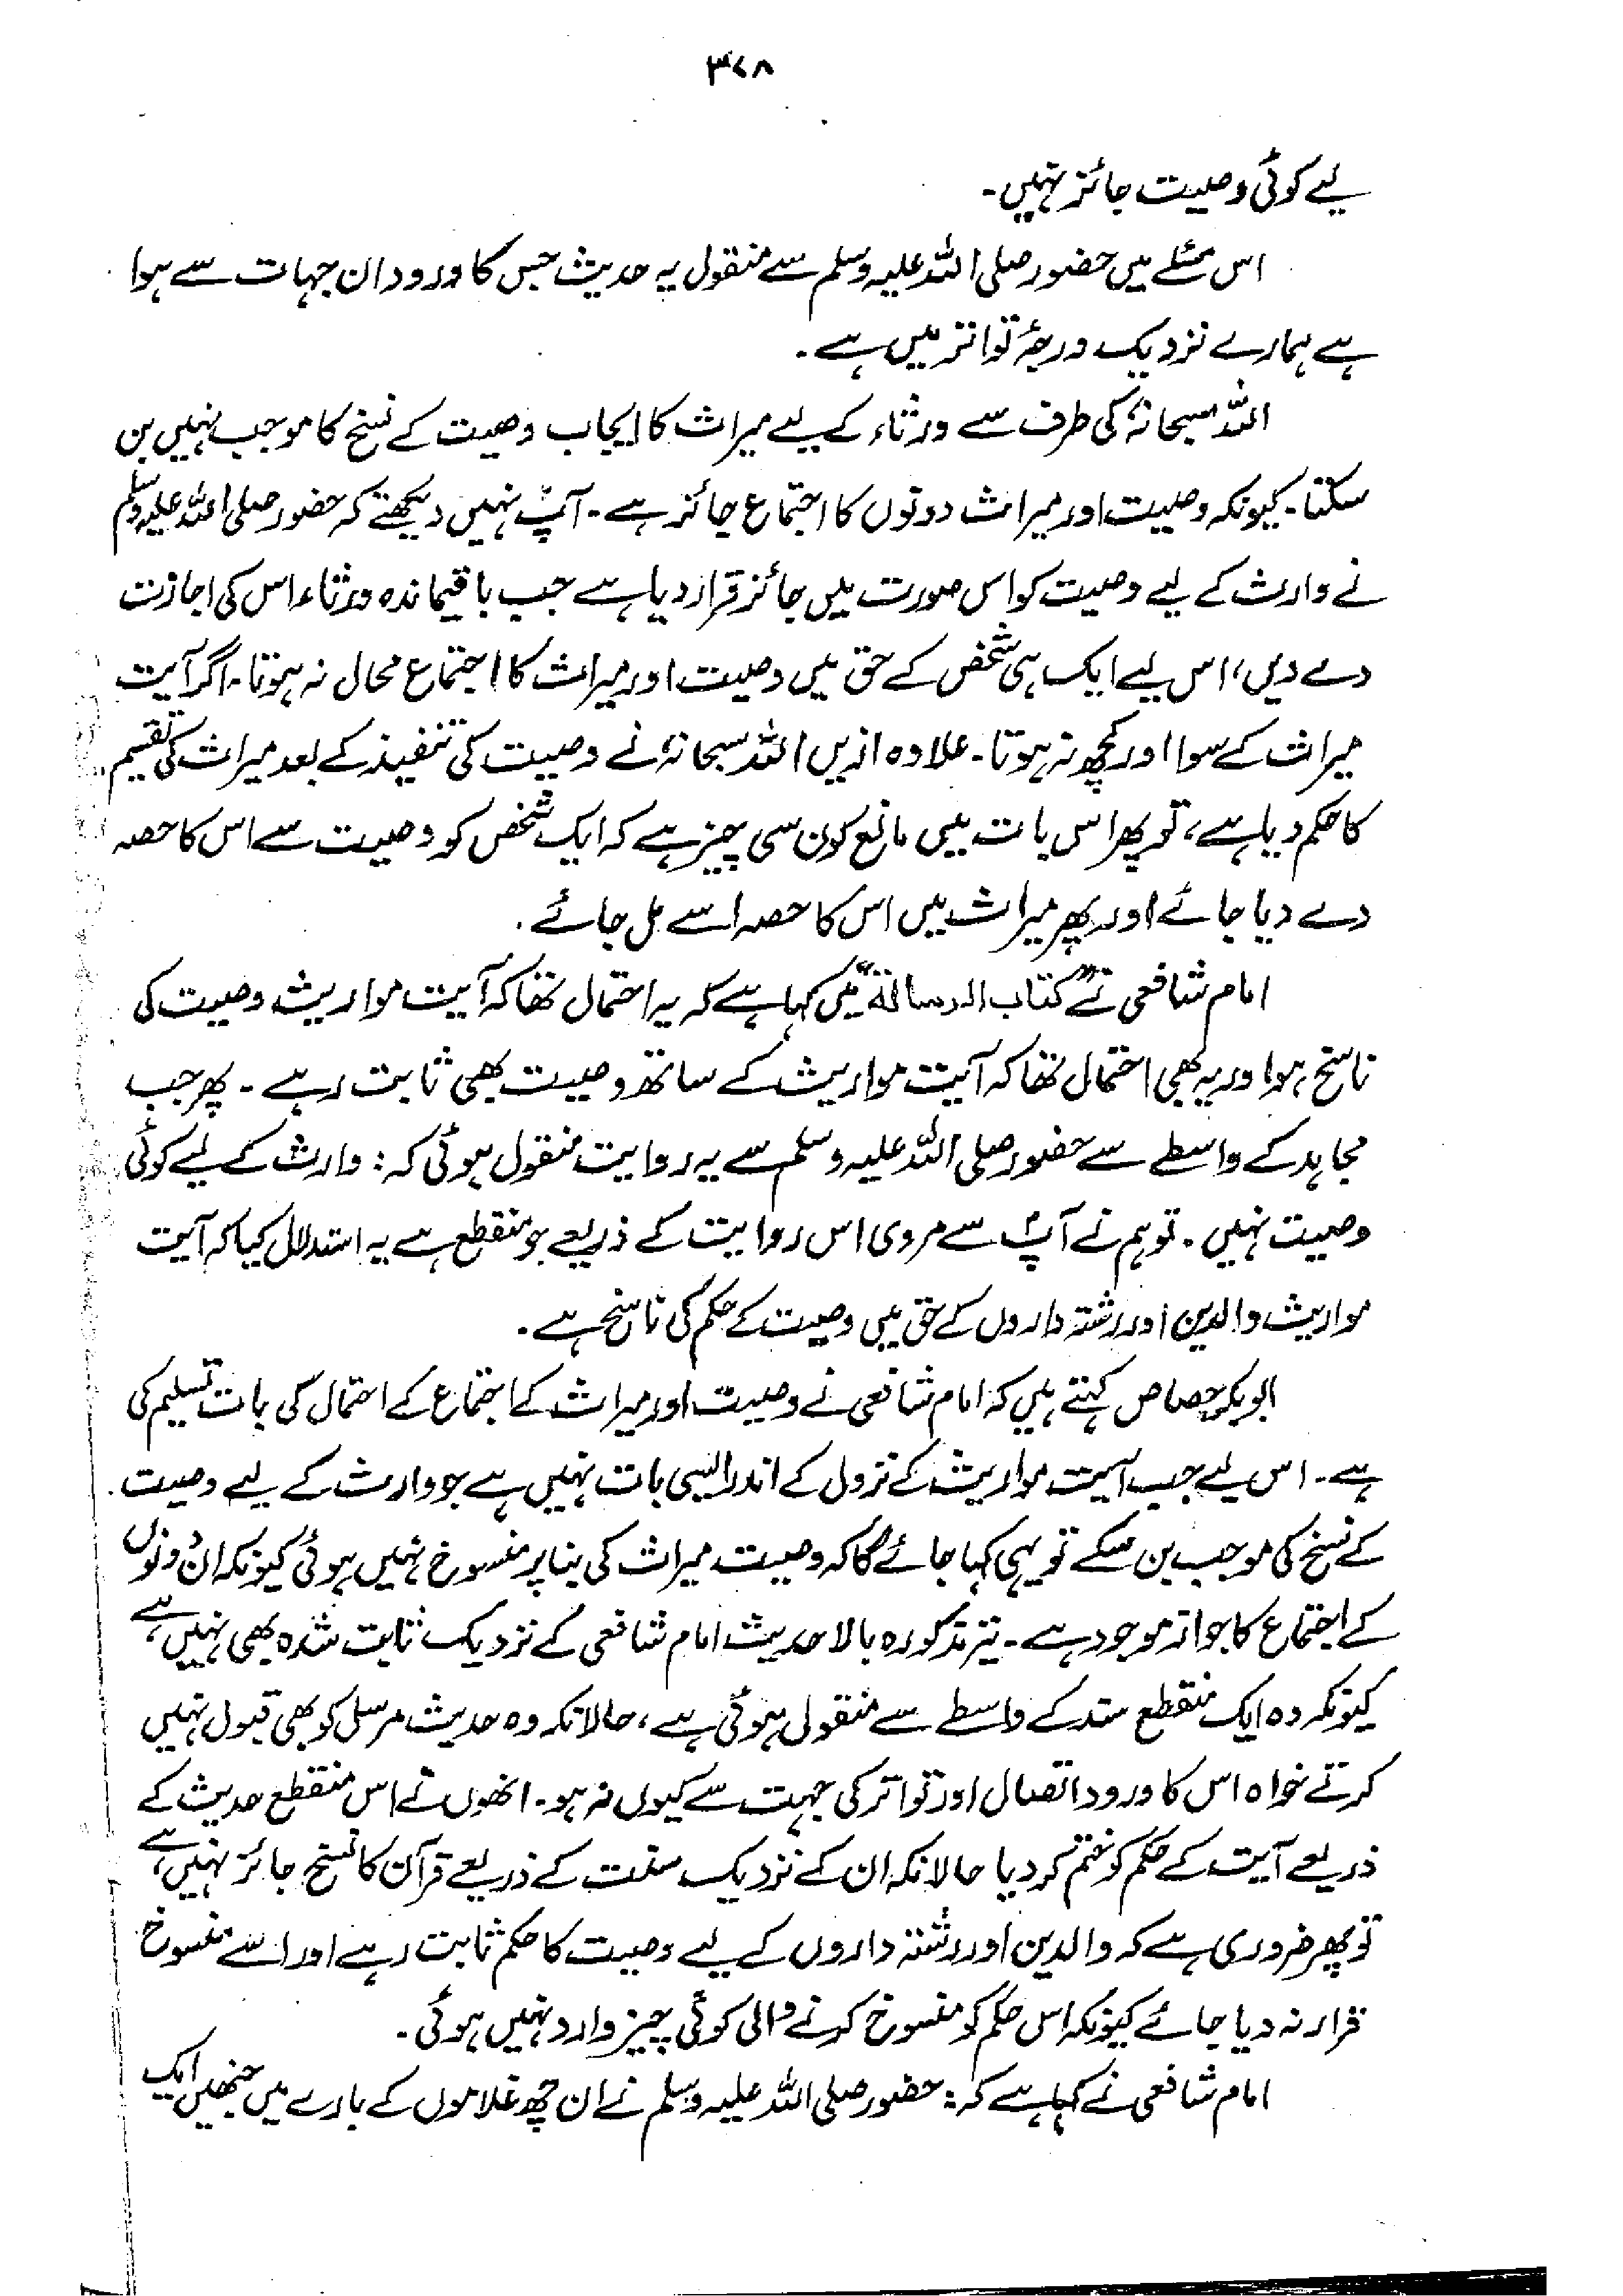 ۳۷۸
لیے کوئی وصیت جائز نہیں۔
اس مسئلے میں حضور صلی اللہ علیہ وسلم سے منقول یہ حدیث جس کا ورود ان جہات سے ہوا
ہے ہمارے نزدیک درجۂ تواتر میں ہے۔
اللہ سبحانہٗ کی طرف سے ورثاء کے لیے میراث کا ایجاب وصیت کے نسخ کا موجب نہیں بن
سکتا۔ کیونکہ وصیت اور میراث دونوں کا اجتماع جائز ہے۔ آپ نہیں دیکھتے کہ حضور صلی اللہ علیہ وسلم
نے وارث کے لیے وصیت کو اس صورت میں جائز قرار دیا ہے جب باقیماندہ ورثاء اس کی اجازت
دے دیں، اس لیے ایک ہی شخص کے حق میں وصیت اور میراث کا اجتماع محال نہ ہوتا۔ اگر آیت
میراث کے سوا اور کچھ نہ ہوتا۔ علاوہ ازیں اللہ سبحانہٗ نے وصیت کی تنفیذ کے بعد میراث کی تقسیم
کا حکم دیا ہے، تو پھر اس بات میں مانع کون سی چیز ہے کہ ایک شخص کو وصیت سے اس کا حصہ
دے دیا جائے اور پھر میراث میں اس کا حصہ اسے مل جائے۔
امام شافعی نے "کتاب الرسالۃ" میں کہا ہے کہ یہ احتمال تھا کہ آیت مواریث وصیت کی
ناسخ ہو اور یہ بھی احتمال تھا کہ آیت مواریث کے ساتھ وصیت بھی ثابت رہے۔ پھر جب
مجاہد کے واسطے سے حضور صلی اللہ علیہ وسلم سے یہ روایت منقول ہوئی کہ: وارث کے لیے کوئی
وصیت نہیں۔ تو ہم نے آپؐ سے مروی اس روایت کے ذریعے جو منقطع ہے یہ استدلال کیا کہ آیت
مواریث والدین اور رشتہ داروں کے حق میں وصیت کے حکم کی ناسخ ہے۔
ابوبکر جصاص کہتے ہیں کہ امام شافعی نے وصیت اور میراث کے اجتماع کے احتمال کی بات تسلیم کی
ہے۔ اس لیے جب آیت مواریث کے نزول کے اندر ایسی بات نہیں ہے جو وارث کے لیے وصیت
کے نسخ کی موجب بن سکے تو یہی کہا جائے گا کہ وصیت میراث کی بنا پر منسوخ نہیں ہوئی کیونکہ ان دونوں
کے اجتماع کا جواز موجود ہے۔ نیز مذکورہ بالا حدیث امام شافعی کے نزدیک ثابت شدہ بھی نہیں ہے
کیونکہ وہ ایک منقطع سند کے واسطے سے منقول ہوئی ہے، حالانکہ وہ حدیث مرسل کو بھی قبول نہیں
کرتے خواہ اس کا ورود اتصال اور تواتر کی جہت سے کیوں نہ ہو۔ انھوں نے اس منقطع حدیث کے
ذریعے آیت کے حکم کو ختم کر دیا حالانکہ ان کے نزدیک سنت کے ذریعے قرآن کا نسخ جائز نہیں ہے،
تو پھر ضروری ہے کہ والدین اور رشتہ داروں کے لیے وصیت کا حکم ثابت رہے اور اسے منسوخ
قرار نہ دیا جائے کیونکہ اس حکم کو منسوخ کرنے والی کوئی چیز وارد نہیں ہوئی۔
امام شافعی نے کہا ہے کہ: حضور صلی اللہ علیہ وسلم نے ان چھ غلاموں کے بارے میں جنھیں ایک